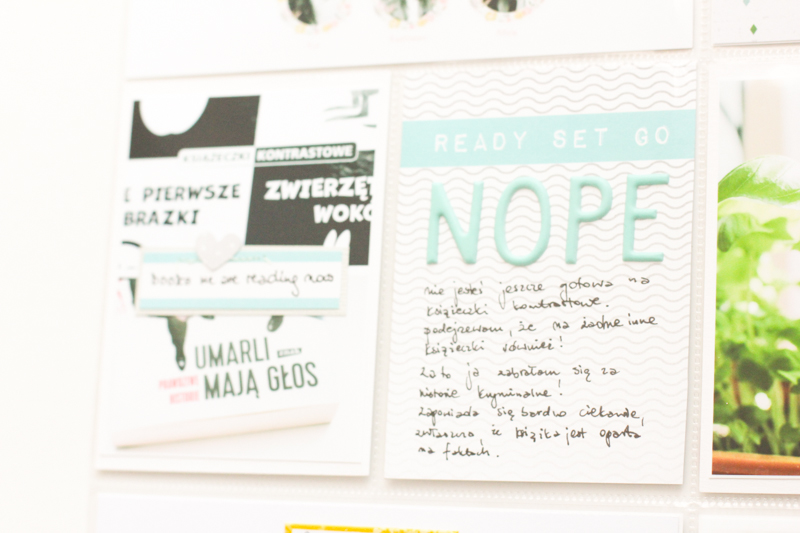 KSIĄŻECZKI KONTRASTOWE
PIERWSZE
ZWIERZĘT
BRAZKI
WOKÓ
books we are reading now
UMARLI
MAJĄ GŁOS
PRAWDZIWE
HISTORIE
READY SET GO
NOPE
nie jesteś jeszcze gotowa na
książeczki kontrastowe.
podejrzewam, że na żadne inne
książeczki również!
Za to ja zabrałam się za
historie kryminalne!
zapowiada się bardzo ciekawie,
zwłaszcza, że książka jest oparta
na faktach.